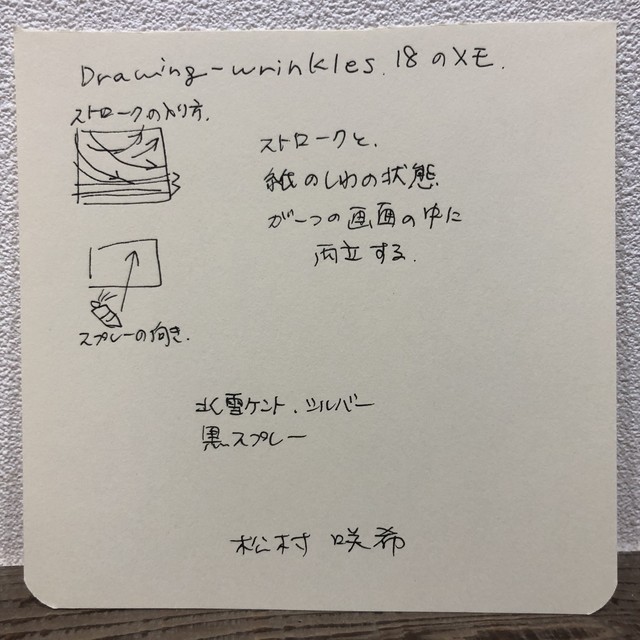 Drawing-wrinkles.18のメモ.
ストロークの入り方.
ストロークと、
紙のしわの状態
が一つの画面の中に
両立する.
スプレーの向き.
北雪ケント、シルバー
黒スプレー
松村 咲希